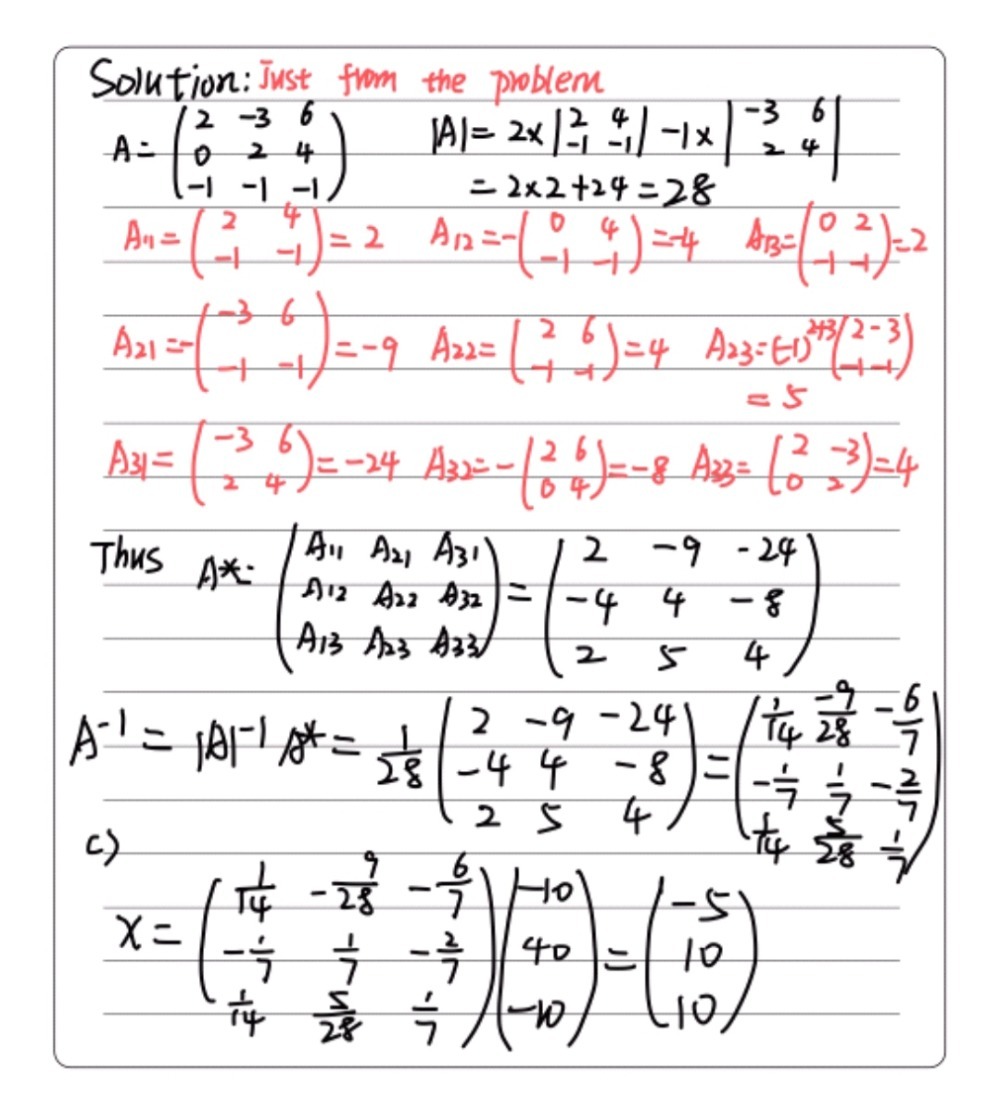 Solution: Just from the problem
A = (2 -3 6; 0 2 4; -1 -1 -1) |A| = 2x|2 4; -1 -1| -1x|-3 6; 2 4|
= 2x2+24 = 28
A11 = (2 4; -1 -1) = 2 A12 = -(0 4; -1 -1) = -4 A13 = (0 2; -1 -1) = 2
A21 = -(-3 6; -1 -1) = -9 A22 = (2 6; -1 -1) = 4 A23 = (-1)^2+3 (2 -3; -1 -1)
= 5
A31 = (-3 6; 2 4) = -24 A32 = -(2 6; 0 4) = -8 A33 = (2 -3; 0 2) = 4
Thus A*: (A11 A21 A31; A12 A22 A32; A13 A23 A33) = (2 -9 -24; -4 4 -8; 2 5 4)
A^-1 = |A|^-1 A* = 1/28 (2 -9 -24; -4 4 -8; 2 5 4) = (1/14 -9/28 -6/7; -1/7 1/7 -2/7; 1/14 5/28 1/7)
c)
x = (1/14 -9/28 -6/7; -1/7 1/7 -2/7; 1/14 5/28 1/7)(-10; 40; -10) = (-5; 10; 10)